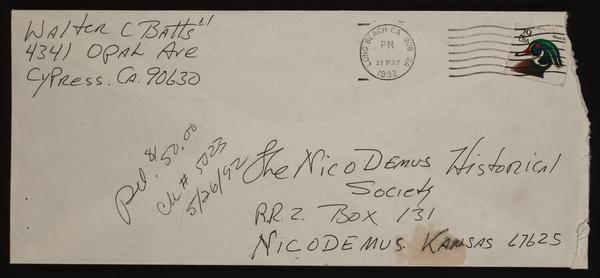 Walter C Batts
4341 Opal Ave
Cypress. CA. 90630
LONG BEACH CA 908 24
PM
23 MAY
1992
29
USA
Pd. $50.00
Ck # 5023
5/26/92
The NicoDemus Historical
Society
R.R. 2. Box 131
NICODEMUS. KANSAS 67625